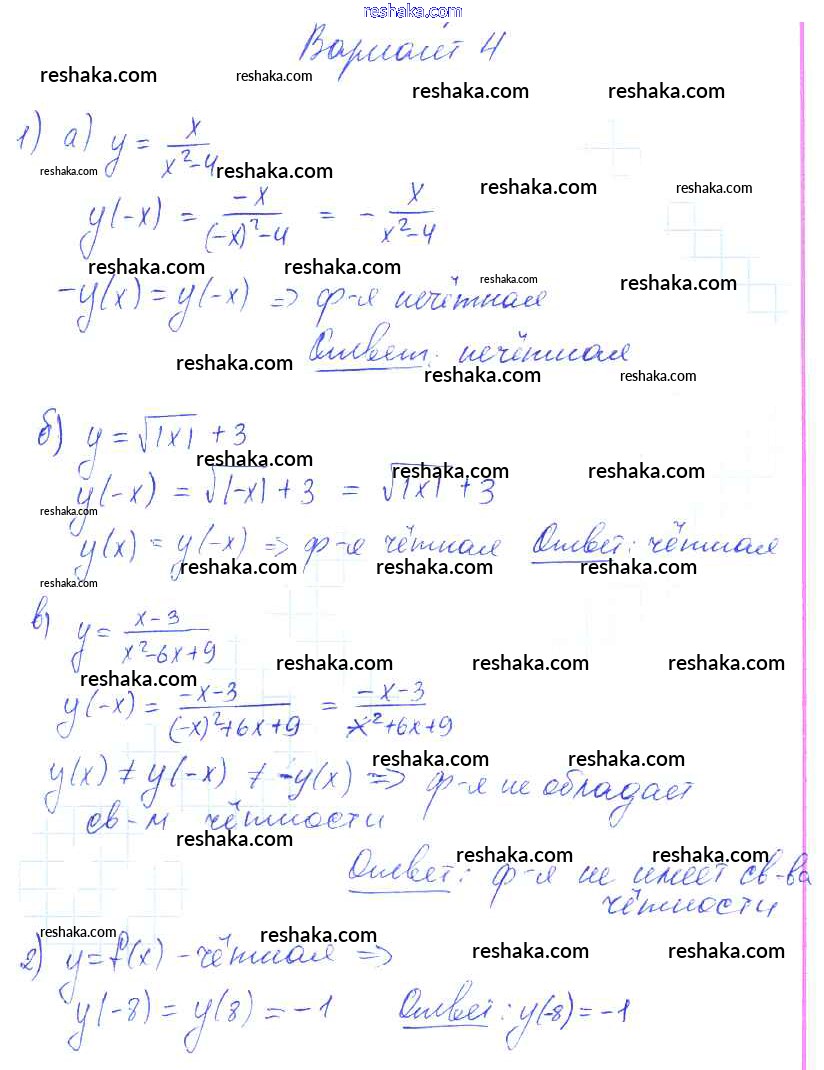 reshaka.com
Вариант 4
reshaka.com reshaka.com reshaka.com reshaka.com
1) а) y = x/(x²-4)
reshaka.com reshaka.com reshaka.com reshaka.com
y(-x) = -x/((-x)²-4) = - x/(x²-4)
reshaka.com reshaka.com reshaka.com reshaka.com
-y(x) = y(-x) => ф-я нечётная
Ответ: нечётная
reshaka.com reshaka.com reshaka.com
б) y = √|x| + 3
reshaka.com reshaka.com reshaka.com
y(-x) = √|-x| + 3 = √|x| + 3
reshaka.com
y(x) = y(-x) => ф-я чётная Ответ: чётная
reshaka.com reshaka.com reshaka.com reshaka.com
в) y = (x-3)/(x²-6x+9)
reshaka.com reshaka.com reshaka.com reshaka.com
y(-x) = (-x-3)/((-x)²+6x+9) = (-x-3)/(x²+6x+9)
reshaka.com reshaka.com
y(x) ≠ y(-x) ≠ -y(x) => ф-я не обладает
св-м чётности
reshaka.com reshaka.com reshaka.com
Ответ: ф-я не имеет св-ва
чётности
reshaka.com reshaka.com reshaka.com
2) y=f(x) - чётная =>
y(-8) = y(8) = -1 Ответ: y(-8) = -1